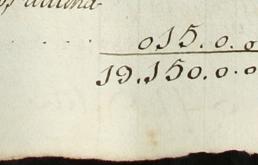 . . . . 015.0.0
19.150.0.0